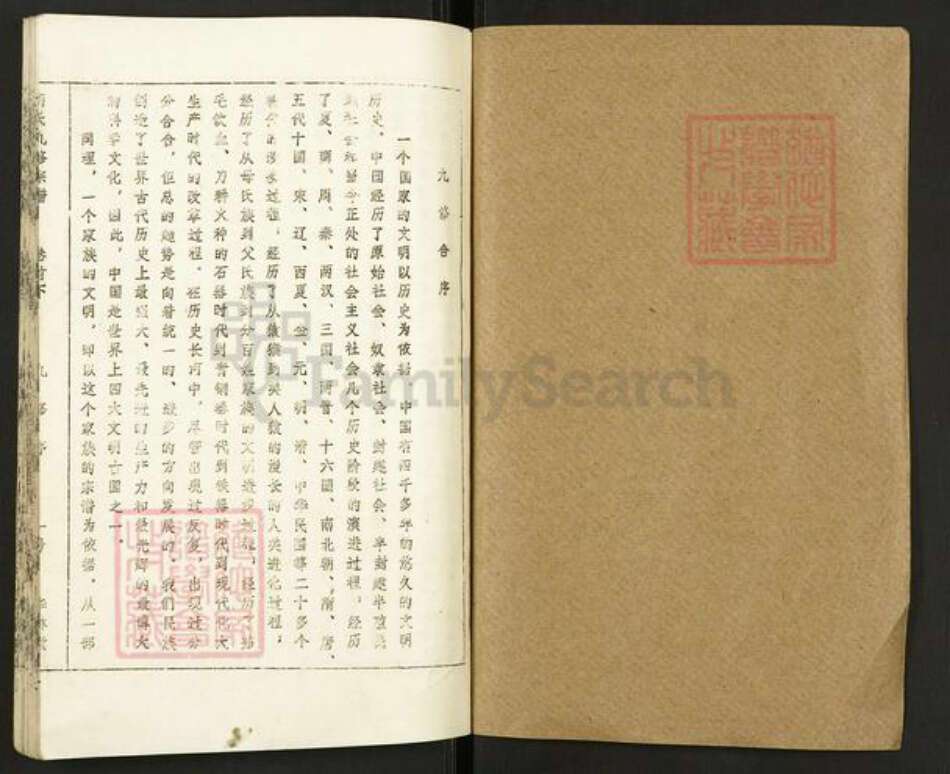 九修合序
一个国家的文明以历史为依据，中国有四千多年的悠久的文明
历史。中国经历了原始社会、奴隶社会、封建社会、半封建半殖民
地社会和当今正处的社会主义社会几个历史阶段的演进过程，经历
了夏、商、周、秦、两汉、三国、两晋、十六国、南北朝、隋、唐、
五代十国、宋、辽、西夏、金、元、明、清、中华民国等二十多个
过程，经历了从猿猴到类人猿的漫长的人类进化过程，
经历了从母氏族到父氏族到分百姓家族的文明进步过程，经历了茹
毛饮血、刀耕火种的石器时代到青铜器时代到铁器时代到现代化大
生产时代的改革过程。在历史长河中，尽管出现过反复，出现过分
分合合，但总的趋势是向着统一的、进步的方向发展的。我们民族
创造了世界古代历史上最强大、最先进的生产力和最光辉的最伟大
的科学文化，因此，中国是世界上四大文明古国之一。
同理，一个家族的文明，即以这个家族的宗谱为依据。从一部
九修宗谱 卷首下 九修序 一
FamilySearch